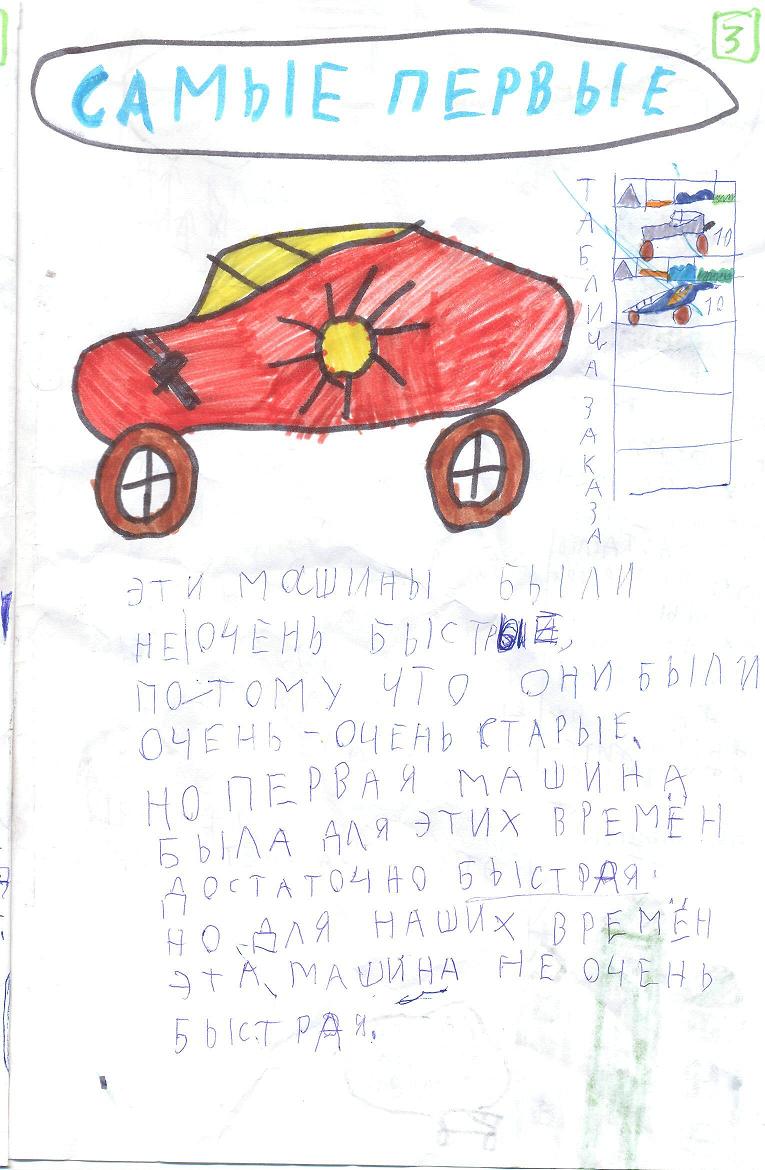 3
САМЫЕ ПЕРВЫЕ
ТАБЛИЦА ЗАКАЗА
10
10
ЭТИ МАШИНЫ БЫЛИ
НЕ ОЧЕНЬ БЫСТРЫЕ,
ПОТОМУ ЧТО ОНИ БЫЛИ
ОЧЕНЬ-ОЧЕНЬ СТАРЫЕ.
НО ПЕРВАЯ МАШИНА
БЫЛА ДЛЯ ЭТИХ ВРЕМЁН
ДОСТАТОЧНО БЫСТРАЯ.
НО ДЛЯ НАШИХ ВРЕМЁН
ЭТА МАШИНА НЕ ОЧЕНЬ
БЫСТРАЯ.